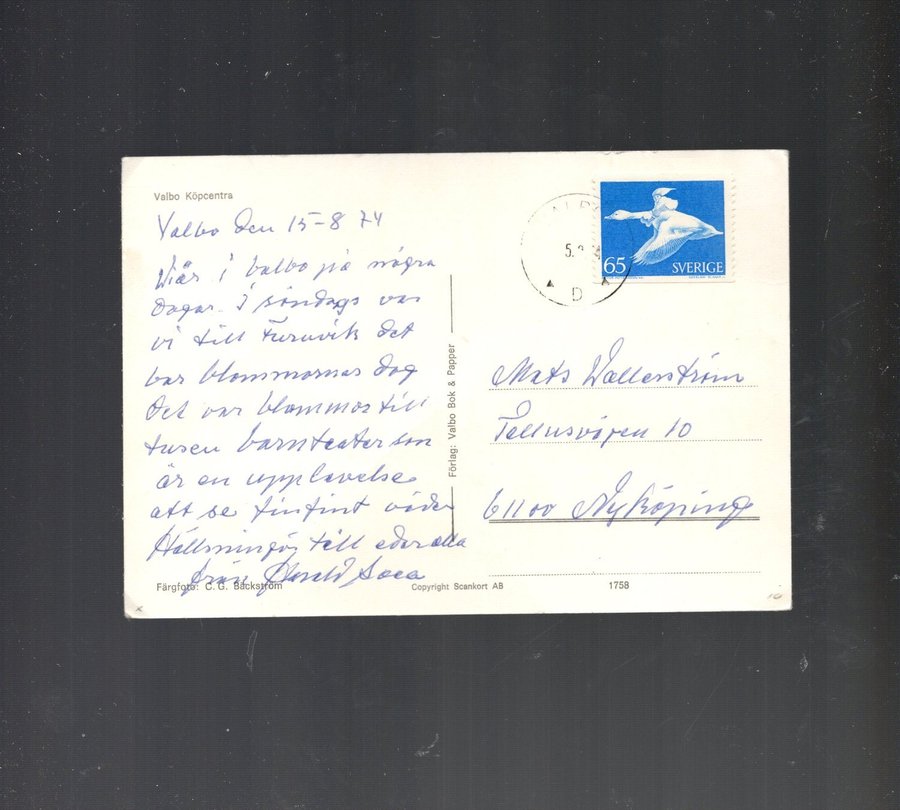 Valbo Köpcentra
Valbo den 15-8 74
Vi är i Valbo på några
dagar. I söndags var
vi till Furuvik det
var blommornas dag
det var blommor till
tusen barnteater som
är en upplevelse
att se finfint väder
Hällsningar till eder alla
från Harald
Färgfoto: C. G. Bäckström
Förlag: Valbo Bok & Papper
Copyright Scankort AB
1758
65 SVERIGE
D
Mats Wallerström
Tellusvägen 10
61100 Nyköping